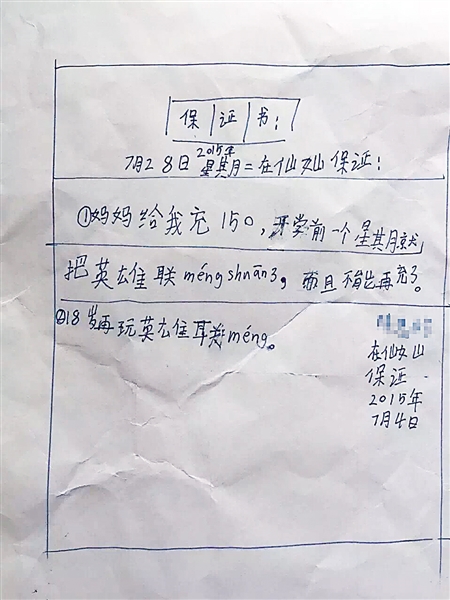 保证书:
2015年
7月28日星期二在仙女山保证:
①妈妈给我充150,开学前一个星期就
把英雄联méngshuān3,而且不能再充了。
②18岁再玩英雄联méng。
在仙女山
保证.
2015年
7月4日